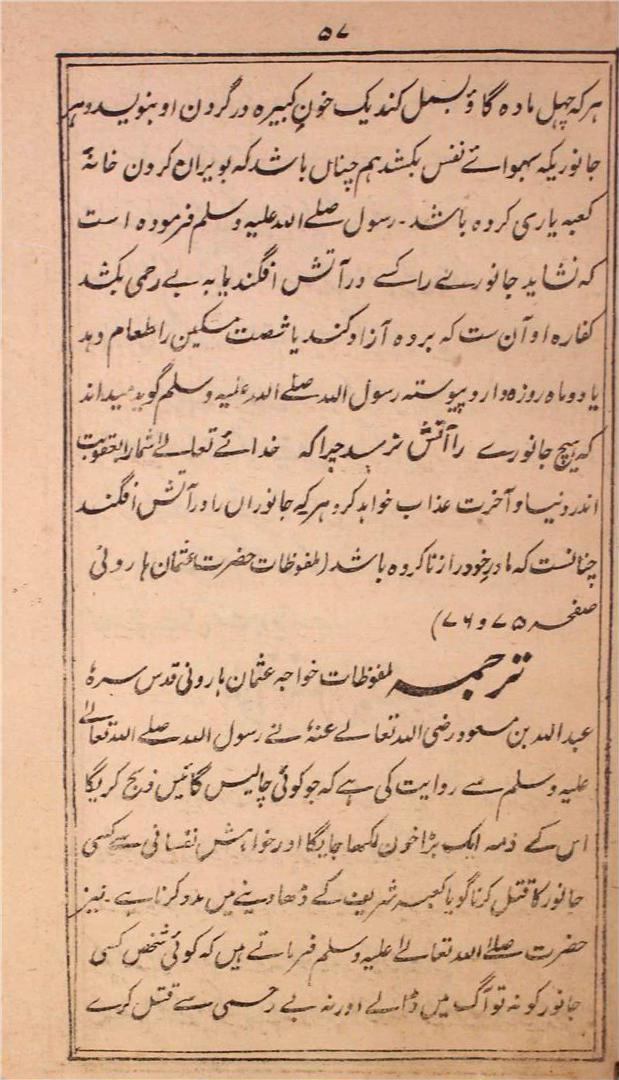 ۵۷
ہرکہ چہل مادہ گاؤ بسمل کند یک خونِ کبیرہ در گردن او بنویسد و ہر
جانوریکہ بہوائے نفس بکشد ہم چناں باشد کہ بویران کردن خانۂ
کعبہ یاری کردہ باشد۔ رسول صلے اللہ علیہ وسلم فرمودہ است
کہ نشاید جانورے را کسے در آتش افگند یا بہ بے رحمی بکشد
کفارہ او آن ست کہ بردہ آزاد کند یا شصت مسکین را طعام دہد
یا دو ماہ روزہ دارد پیوستہ رسول اللہ صلے اللہ علیہ وسلم گوید میداند
کہ ہیچ جانورے را آتش نرسد چرا کہ خدائے تعالے شمارا بعقوبت
اندر دنیا و آخرت عذاب خواہد کرد ہر کہ جانوراں را در آتش افگند
چنانست کہ مادر خود را زنا کردہ باشد (ملفوظات حضرت عثمان ہارونی
صفحہ ۷۵ و ۷۶)
ترجمہ ملفوظات خواجہ عثمان ہارونی قدس سرہٗ
عبد اللہ بن مسعود رضی اللہ تعالے عنہٗ نے رسول اللہ صلے اللہ تعالےٰ
علیہ وسلم سے روایت کی ہے کہ جو کوئی چالیس گائیں ذبح کریگا
اس کے ذمہ ایک بڑا خون لکھا جایگا اور خواہش نفسانی سے کسی
جانور کا قتل کرنا گویا کعبہ شریف کے ڈھا دینے میں مدد کرنا ہے۔ نیز
حضرت صلے اللہ تعالےٰ علیہ وسلم فرماتے ہیں کہ کوئی شخص کسی
جانور کو نہ تو آگ میں ڈالے اور نہ بے رحمی سے قتل کرے